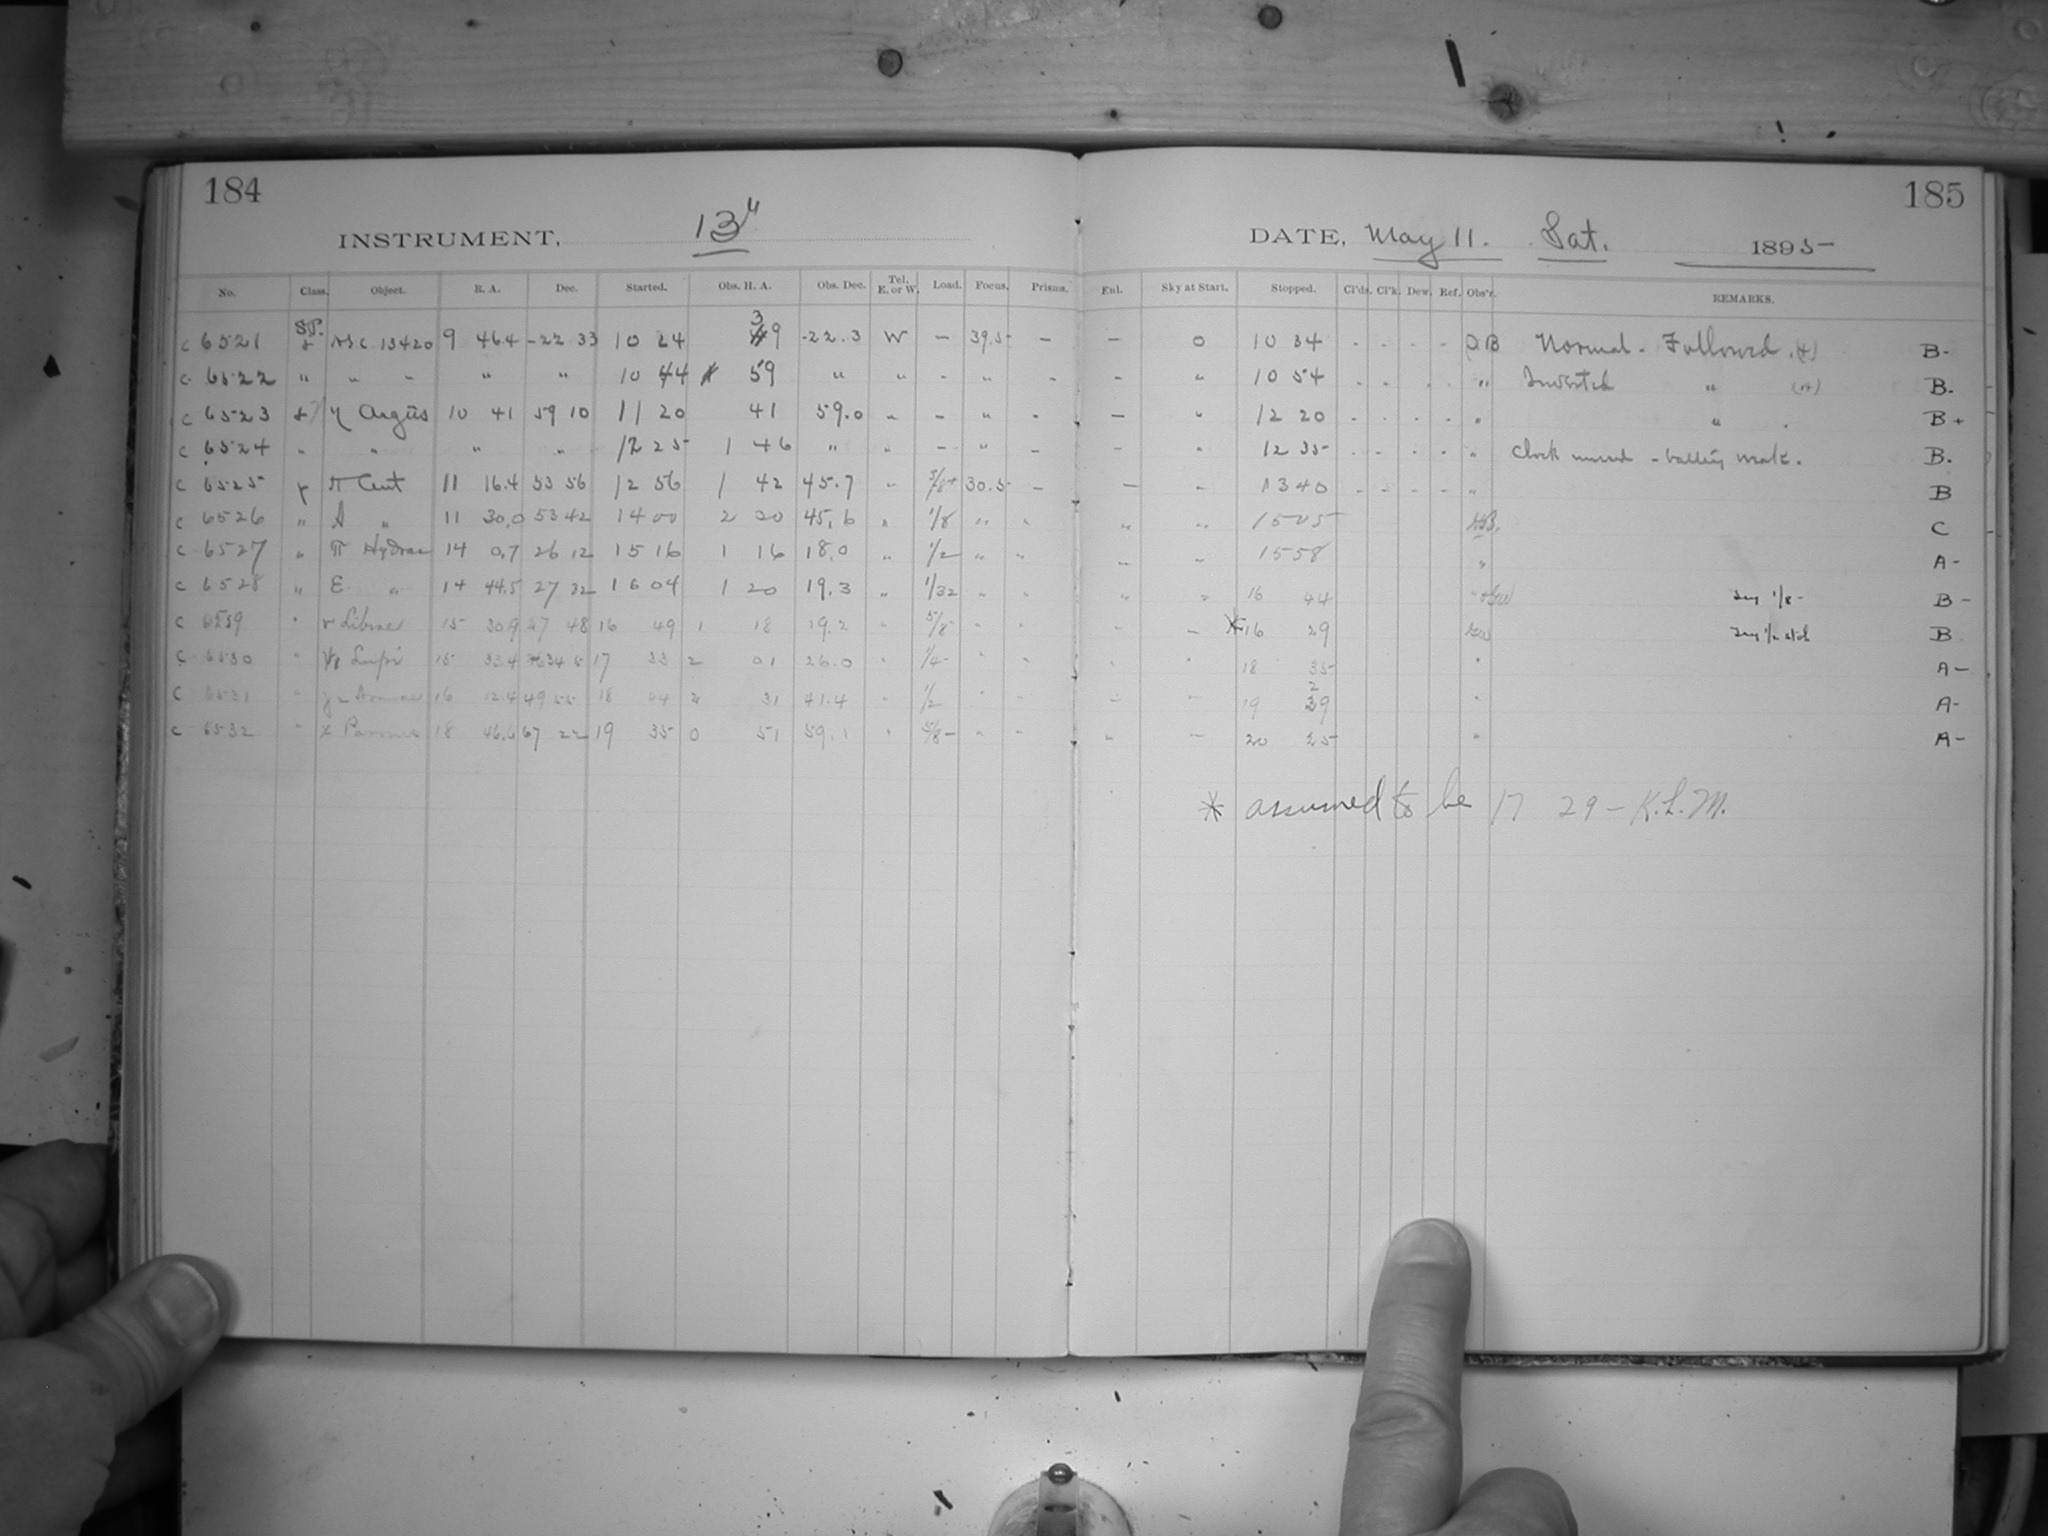 184
185
INSTRUMENT, 13"
DATE, May 11. Sat. 1895
No. Class. Object. R. A. Dec. Started. Obs. H. A. Obs. Dec. Tel. E. or W. Load. Focus. Prisms. Eul. Sky at Start. Stopped. Cl'ds. Cl'k. Dew. Ref. Obs'r. REMARKS.
c 6521 AGC 13420 9 46.4 -22 33 10 24 39 -22.3 W - 39.5 - - 0 10 34 - - - - Normal - Followed B-
c 6522 " " " " " " 10 44 59 " " - " - - " 10 54 - - - - " Inverted " B-
c 6523 η Argus 10 41 59 10 11 20 41 59.0 " - " - - " 12 20 - - - - " " B+
c 6524 " " " " 12 25 1 46 " " - " - - " 12 35 - - - - " Clock B-
c 6525 π Cent 11 16.4 53 56 12 56 1 42 45.7 " 3/8+ 30.5 - - " 13 40 - - - - " B
c 6526 " A " 11 30.0 53 42 14 00 2 20 45.6 " 1/8 " " " " 15 05 C
c 6527 " π Hydrae 14 0.7 26 12 15 16 1 16 18.0 " 1/2 " " " " 15 58 " A-
c 6528 " E " 14 44.5 27 32 16 04 1 20 19.3 " 1/32 " " " " 16 44 1/8 - B-
c 6529 " υ Librae 15 30.9 27 48 16 49 1 18 19.2 " 5/8 " " " - *16 29 B
c 6530 " Lupi 15 33.4 34 17 33 2 01 26.0 " 1/4 " " " " 18 35 " A-
c 6531 " 16 12.4 49 55 18 44 2 31 41.4 " 1/2 " " - - 19 29 " A-
c 6532 " Pavonis 18 46.6 67 22 19 35 0 51 59.1 " 5/8- " " " - 20 25 " A-
* assumed to be 17 29 - K.L.M.